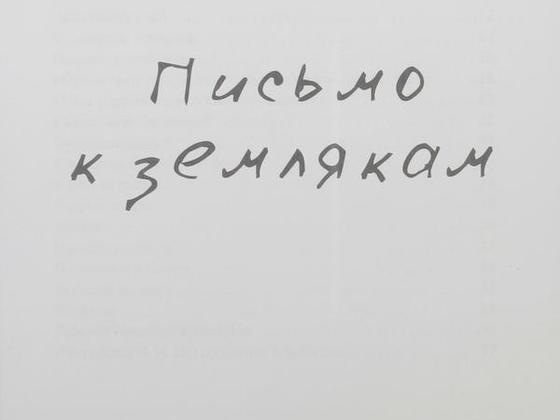 Письмо
к землякам